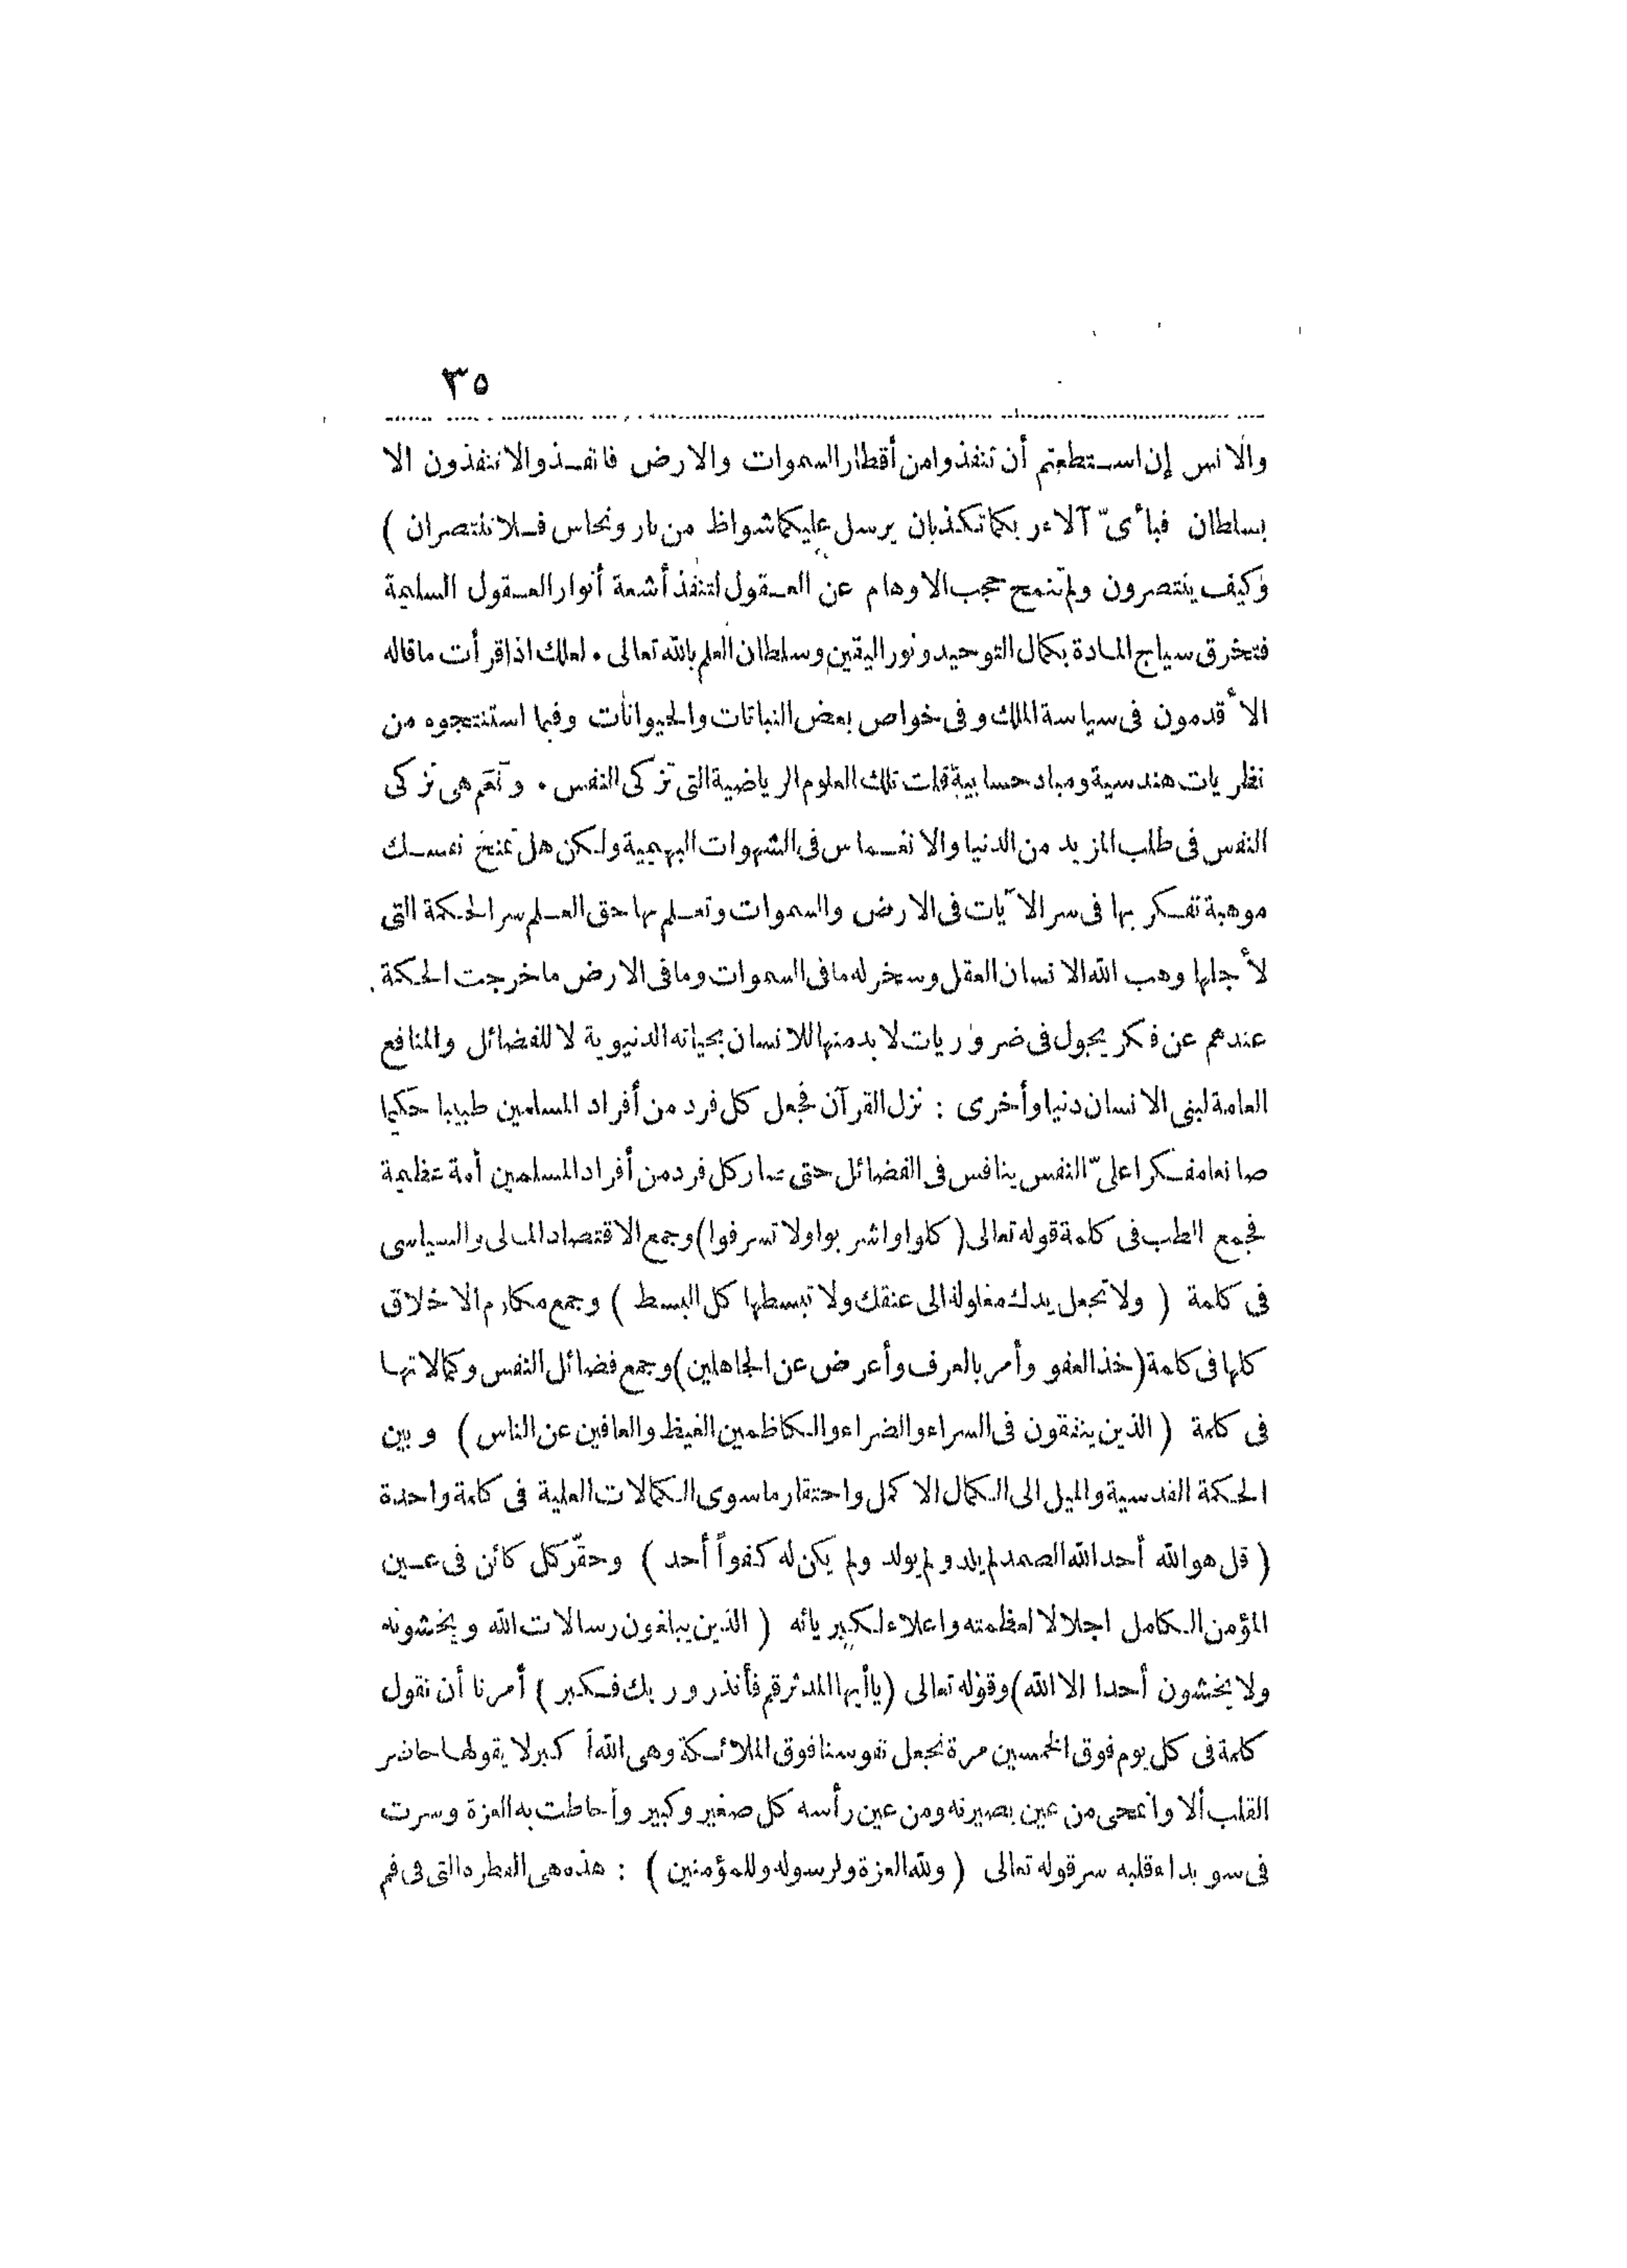 ٣٥
والانس إن استطعتم أن تنفذوا من أقطار السموات والارض فانفذوا لا تنفذون الا
بسلطان فبأىّ آلاء ربكما تكذبان يرسل عليكما شواظ من نار ونحاس فلا تنتصران )
وكيف ينتصرون ولم تنمح حجب الاوهام عن العقول لتنفذ أشعة أنوار العقول السليمة
فتخرق سياج المادة بكمال التوحيد ونور اليقين وسلطان العلم بالله تعالى . لعلك اذا قرأت ما قاله
الأقدمون فى سياسة الملك وفى خواص بعض النباتات والحيوانات وفيما استنتجوه من
نظريات هندسية ومباد حسابية قلت تلك العلوم الرياضية التى تزكى النفس . ونعم هى تزكى
النفس فى طلب المزيد من الدنيا والانغماس فى الشهوات البهيمية ولكن هل تمنح نفسك
موهبة تفكر بها فى سر الآيات فى الارض والسموات وتعلم بها حق العلم سر الحكمة التى
لأجلها وهب الله الانسان العقل وسخر له ما فى السموات وما فى الارض ما خرجت الحكمة
عندهم عن فكر يجول فى ضروريات لا بد منها للانسان بحياته الدنيوية لا للفضائل والمنافع
العامة لبنى الانسان دنيا وأخرى : نزل القرآن فجعل كل فرد من أفراد المسلمين طبيبا حكيما
صانعا مفكرا علىّ النفس ينافس فى الفضائل حتى صار كل فرد من أفراد المسلمين أمة عظيمة
فجمع الطب فى كلمة قوله تعالى ( كلوا واشربوا ولا تسرفوا ) وجمع الاقتصاد المالى والسياسى
فى كلمة ( ولا تجعل يدك مغلولة الى عنقك ولا تبسطها كل البسط ) وجمع مكارم الاخلاق
كلها فى كلمة ( خذ العفو وأمر بالعرف وأعرض عن الجاهلين ) وجمع فضائل النفس وكمالاتها
فى كلمة ( الذين ينفقون فى السراء والضراء والكاظمين الغيظ والعافين عن الناس ) وبين
الحكمة القدسية والميل الى الكمال الاكمل واحتقار ما سوى الكمالات العلية فى كلمة واحدة
( قل هو الله أحد الله الصمد لم يلد ولم يولد ولم يكن له كفواً أحد ) وحقّر كل كائن فى عين
المؤمن الكامل اجلالا لعظمته واعلاء لكبريائه ( الذين يبلغون رسالات الله ويخشونه
ولا يخشون أحدا الا الله ) وقوله تعالى ( ياأيها المدثر قم فأنذر وربك فكبر ) أمرنا أن نقول
كلمة فى كل يوم فوق الخمسين مرة تجعل نفوسنا فوق الملائكة وهى الله أكبر لا يقولها حاضر
القلب ألا وانمحى من عين بصيرته ومن عين رأسه كل صغير وكبير وأحاطت به العزة وسرت
فى سويداء قلبه سر قوله تعالى ( ولله العزة ولرسوله وللمؤمنين ) : هذه هى القطرة التى فى فم